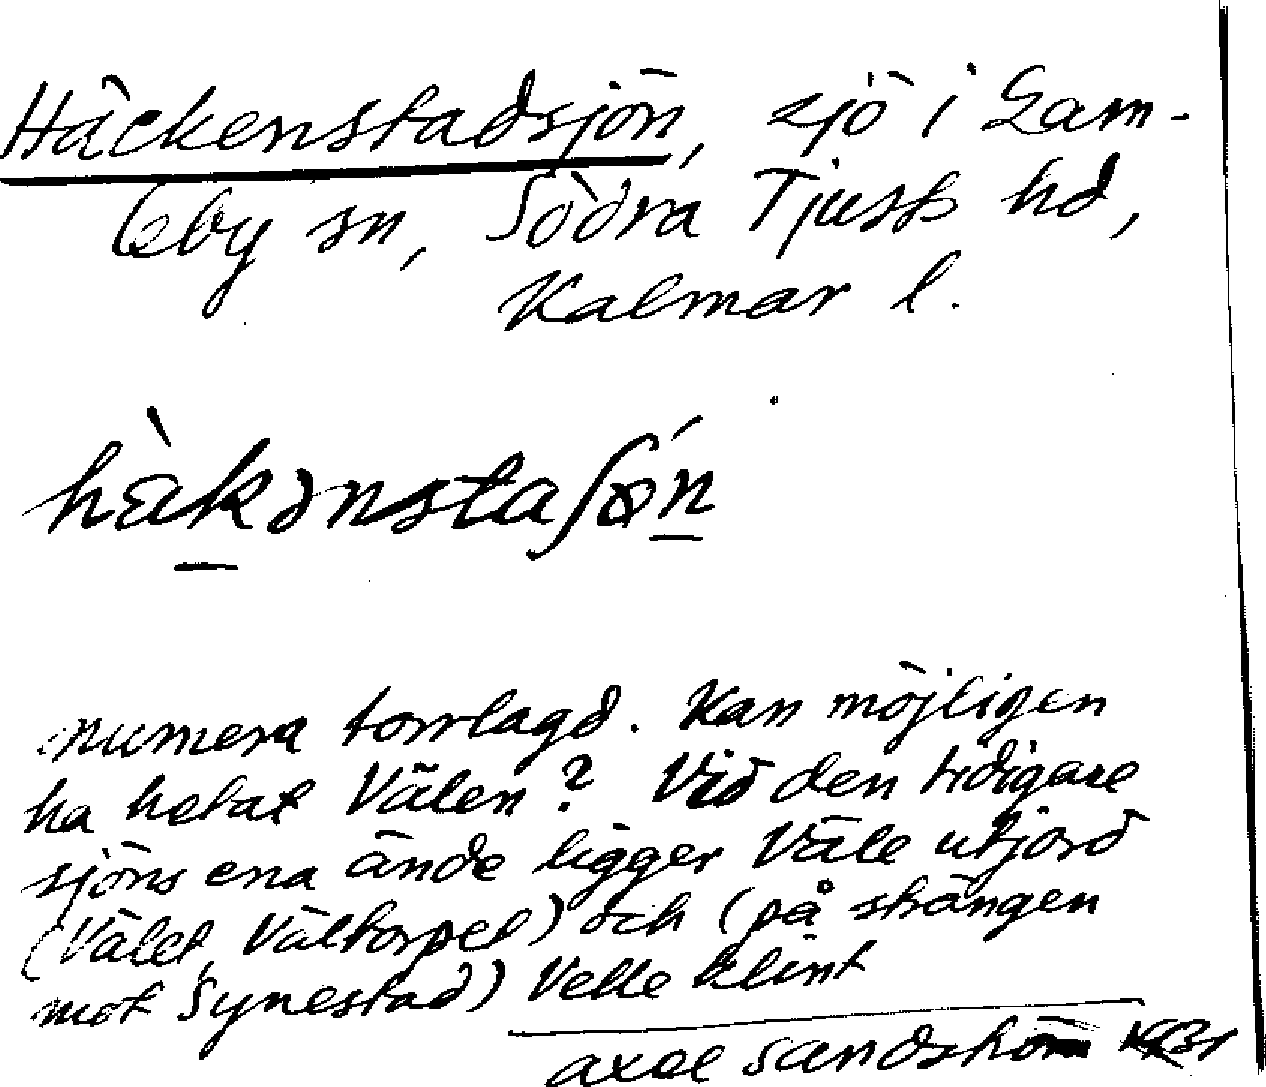 Häckenstadsjön, sjö i Gam-
leby sn, Södra Tjusts hd,
Kalmar l.
hàkənstaʃǿn
numera torrlagd. Kan möjligen
ha hetat Välen? Vid den tidigare
sjöns ena ände ligger Väle utjord
(Välet, Vältorpet) och (på stängen
mot Synestad) Velle klint
axel sandström 1931